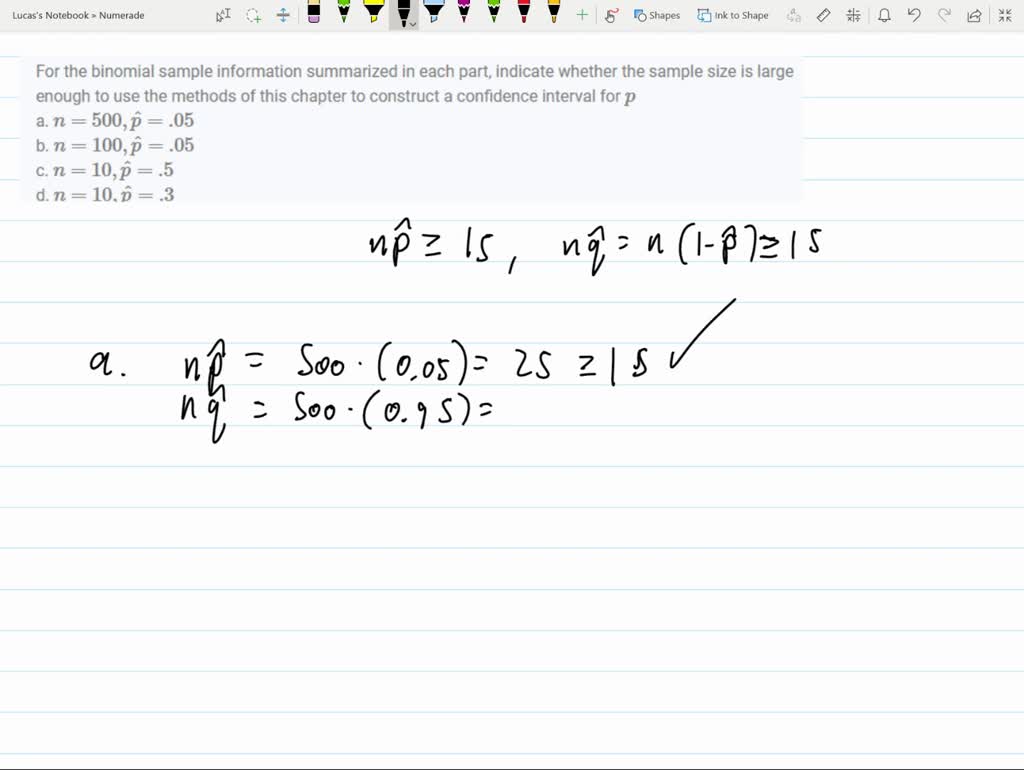 Lucas's Notebook > Numerade
Shapes Ink to Shape
For the binomial sample information summarized in each part, indicate whether the sample size is large
enough to use the methods of this chapter to construct a confidence interval for p
a. n = 500, p̂ = .05
b. n = 100, p̂ = .05
c. n = 10, p̂ = .5
d. n = 10, p̂ = .3
np̂ ≥ 15, nq̂ = n (1-p̂) ≥ 15
a. np̂ = 500 · (0.05) = 25 ≥ 15 ✓
nq̂ = 500 · (0.95) =